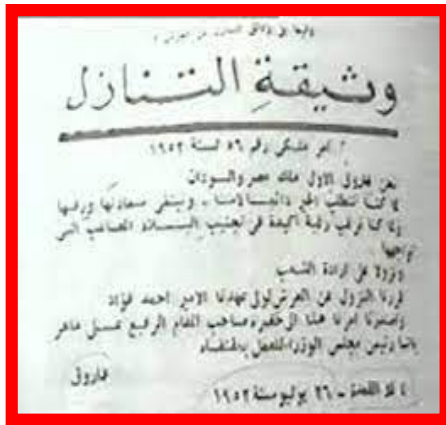 وثيقة التنازل
أمر ملكي رقم ٥٦ لسنة ١٩٥٢
نحن فاروق الاول ملك مصر والسودان
لما كنا نتطلب الخير دائما لامتنا ـ ونبتغي سعادتها ورقيها
ولما كنا نرغب رغبة أكيدة في تجنيب البلاد المصاعب التي
تواجهها
ونزولا على ارادة الشعب
قررنا النزول عن العرش لولي عهدنا الامير احمد فؤاد
وأصدرنا امرنا هذا الى حضرة صاحب المقام الرفيع علي ماهر
باشا رئيس مجلس الوزراء للعمل بمقتضاه
فاروق
٤ ذو القعدة ـ ٢٦ يوليو سنة ١٩٥٢